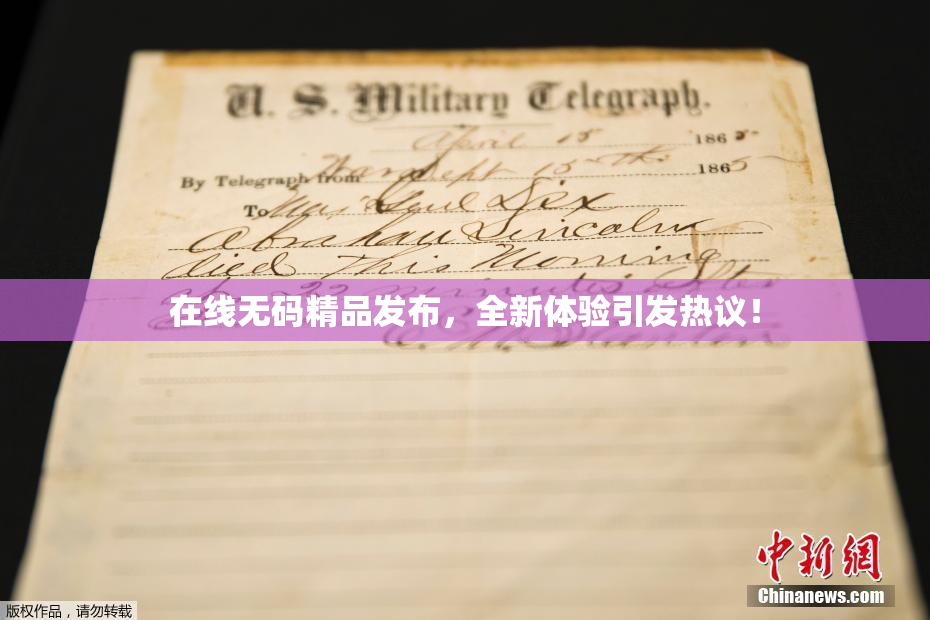 U. S. Military Telegraph.
April 15 1865
By Telegraph from War Dept 15th 1865
To Maj Genl Dix
Abraham Lincoln
died This Morning
at 22 minutes after
在线无码精品发布，全新体验引发热议！
E. M. Stanton
中新网
Chinanews.com
版权作品，请勿转载